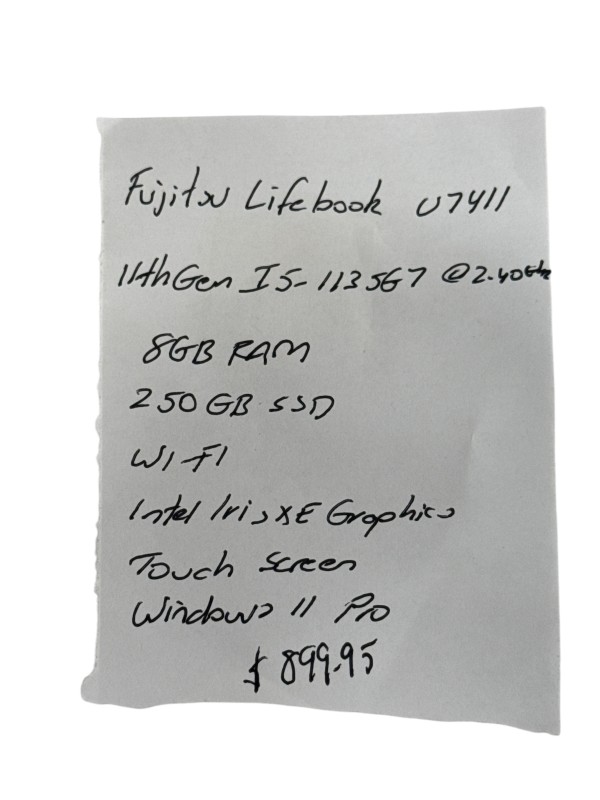 Fujitsu Lifebook U7411
11thGen I5-1135G7 @2.40Ghz
8GB RAM
250 GB SSD
WIFI
Intel Iris XE Graphics
Touch Screen
Windows 11 Pro
$899.95